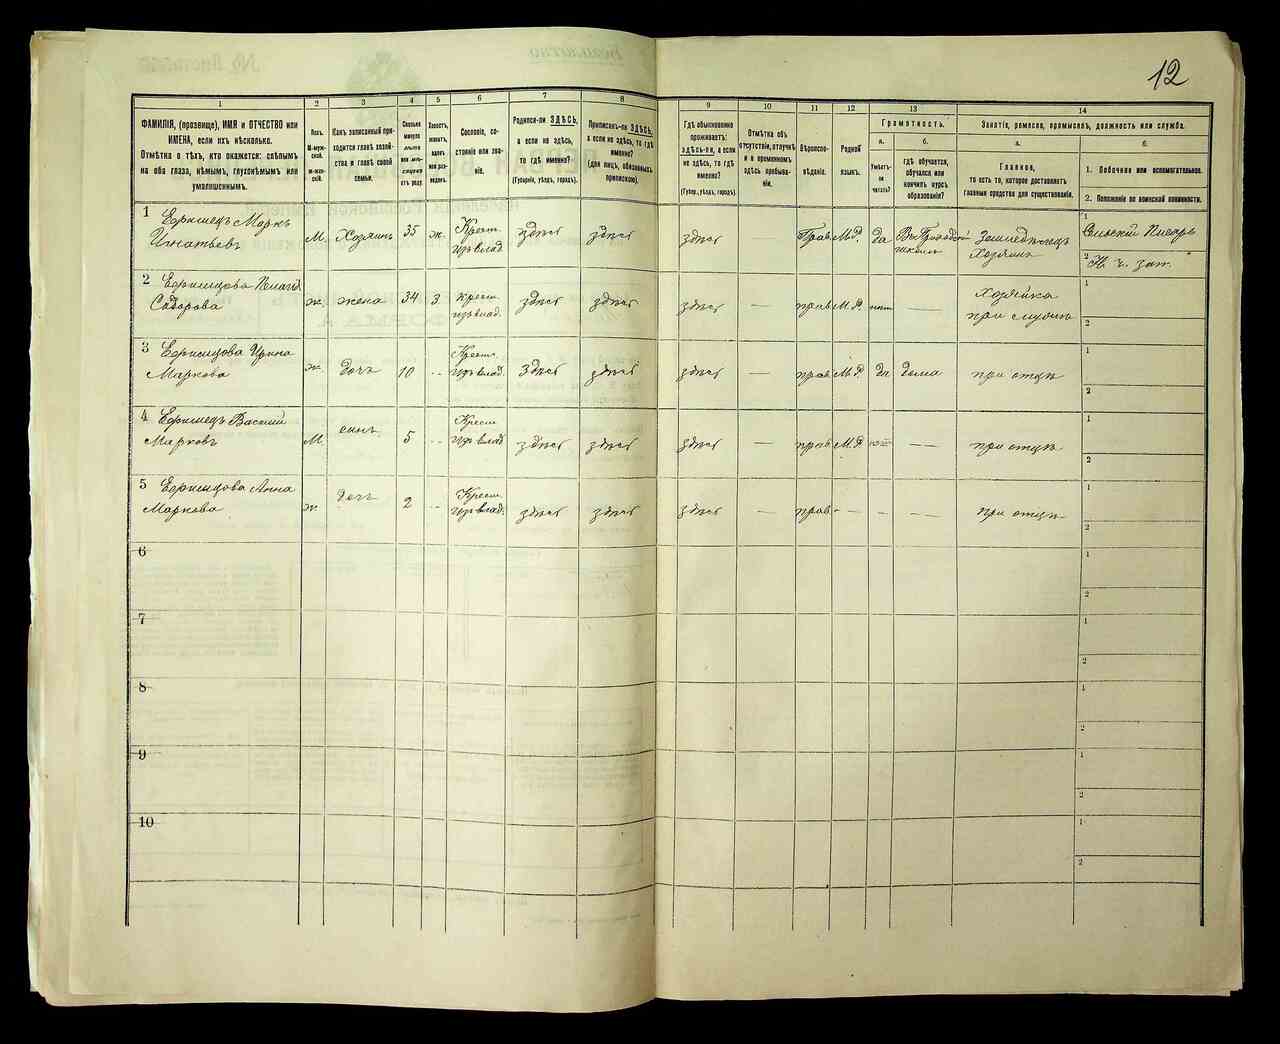 12
1 2 3 4 5 6 7 8 9 10 11 12 13 14
ФАМИЛІЯ, (прозвище), ИМЯ и ОТЧЕСТВО или
ИМЕНА, если ихъ нѣсколько.
Отмѣтка о тѣхъ, кто окажется: слѣпымъ
на оба глаза, нѣмымъ, глухонѣмымъ или
умалишеннымъ.
Полъ.
М-муж-
ской.
Ж-жен-
скій.
Какъ записанный при-
ходится главѣ хозяй-
ства и главѣ своей
семьи.
Сколько
минуло
лѣтъ
или мѣ-
сяцевъ
отъ роду
Холостъ,
женатъ,
вдовъ
или раз-
веденъ.
Сословіе, со-
стояніе или зва-
ніе.
Родился-ли ЗДѢСЬ,
а если не здѣсь,
то гдѣ именно?
(Губернія, уѣздъ, городъ).
Приписанъ-ли ЗДѢСЬ,
а если не здѣсь, то гдѣ
именно?
(для лицъ, обязанныхъ
припискою).
Гдѣ обыкновенно
проживаетъ:
здѣсь-ли, а если
не здѣсь, то гдѣ
именно?
(Губер., уѣздъ, городъ).
Отмѣтка объ
отсутствіи, отлучкѣ
и о временномъ
здѣсь пребыва-
ніи.
Вѣроиспо-
вѣданіе.
Родной
языкъ.
Грамотность.
а.
Умѣетъ-
ли
читать?
б.
Гдѣ обучается,
обучался или
кончилъ курсъ
образованія?
Занятіе, ремесло, промыселъ, должность или служба.
а.
Главное,
то есть то, которое доставляетъ
главныя средства для существованія.
б.
1. Побочное или вспомогательное.
2. Положеніе по воинской повинности.
1 Маркъ
Игнатьевъ М. Хозяинъ 35 ж. Крест. изъ влад. здѣсь здѣсь здѣсь Прав. М.Р. да школѣ Земледѣлецъ
Хозяинъ
1 Сельскій Писарь
2 Н. ч. зап.
2 Пелагея
ж. жена 34 з. крест. изъ влад. здѣсь здѣсь здѣсь — прав. М.Р. нѣтъ — Хозяйка
при мужѣ
1
2
3 Ирина
Маркова ж. дочь 10 -- Крест. изъ влад. здѣсь здѣсь здѣсь — прав. М.Р. да дома при отцѣ
1
2
4 Василій
Марковъ М. сынъ 5 -- Крест. изъ влад. здѣсь здѣсь здѣсь — прав. М.Р. — при отцѣ
1
2
5 Анна
Маркова ж. дочь 2 -- Крест. изъ влад. здѣсь здѣсь здѣсь — прав. — — — при отцѣ
1
2
6
1
2
7
1
2
8
1
2
9
1
2
10
1
2